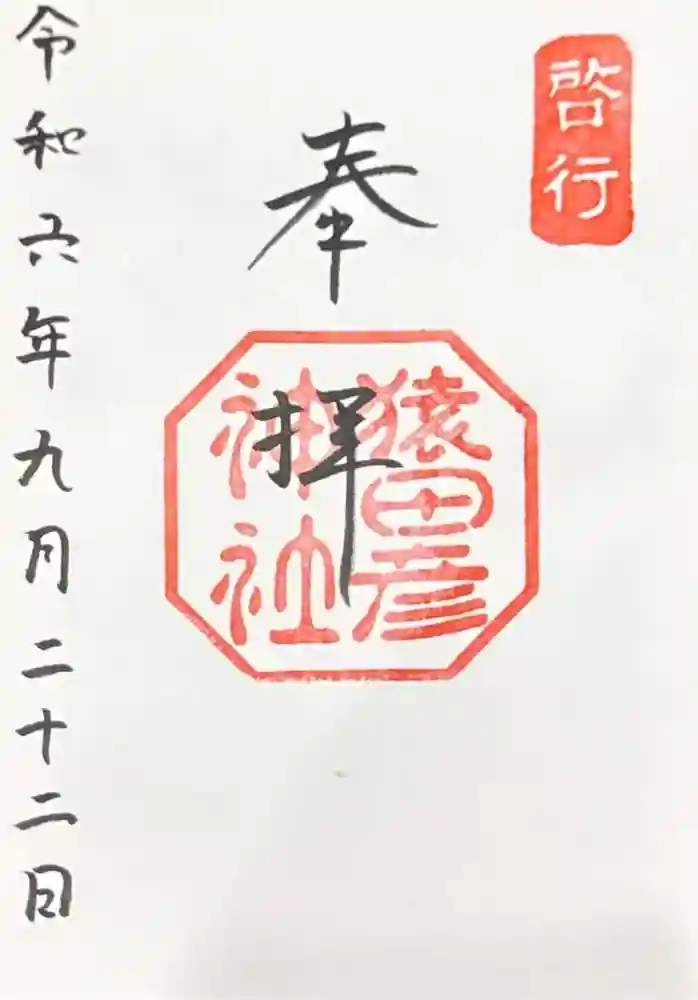 啓行
奉拝
猿田彦
神社
令和六年九月二十二日